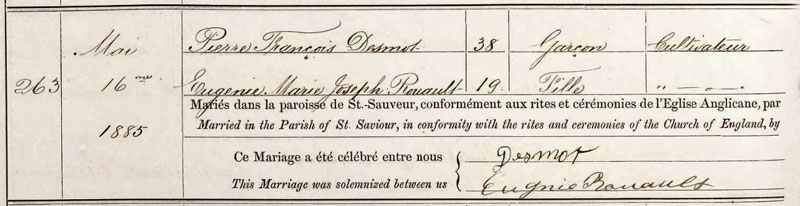 Mai Pierre François Desmot 38 Garçon Cultivateur
263 16me Eugenie Marie Joseph Rouault 19 Fille " — " —
Mariés dans la paroisse de St.-Sauveur, conformément aux rites et cérémonies de l'Eglise Anglicane, par
1885 Married in the Parish of St. Saviour, in conformity with the rites and ceremonies of the Church of England, by
Ce Mariage a été célébré entre nous Desmot
This Marriage was solemnized between us Eugnie Rouault